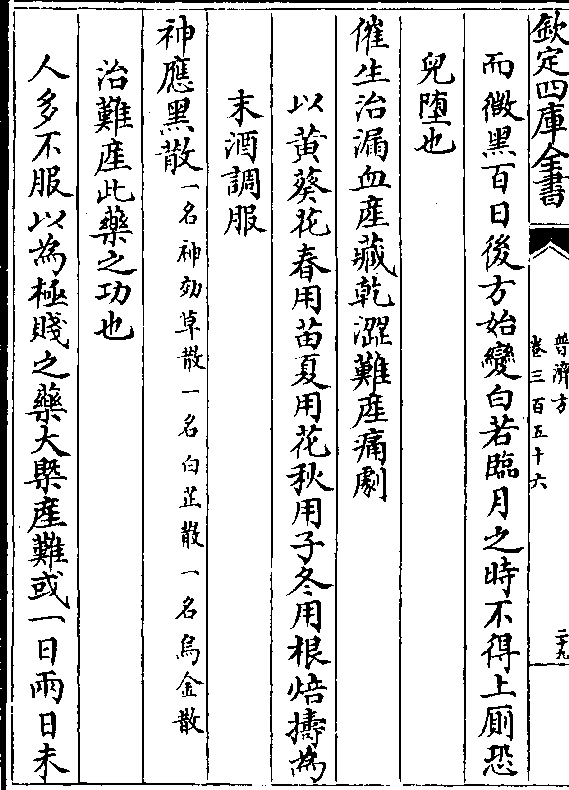 欽定四庫全書
普濟方
卷三百五十六
二十九
而微黑百日後方始變白若臨月之時不得上厠恐
兒墮也
催生治漏血産藏乾澀難産痛劇
以黄葵花春用苗夏用花秋用子冬用根焙擣為
末酒調服
神應黑散一名神効草散一名白芷散一名烏金散
治難産此藥之功也
人多不服以為極賤之藥大槩産難或一日兩日未